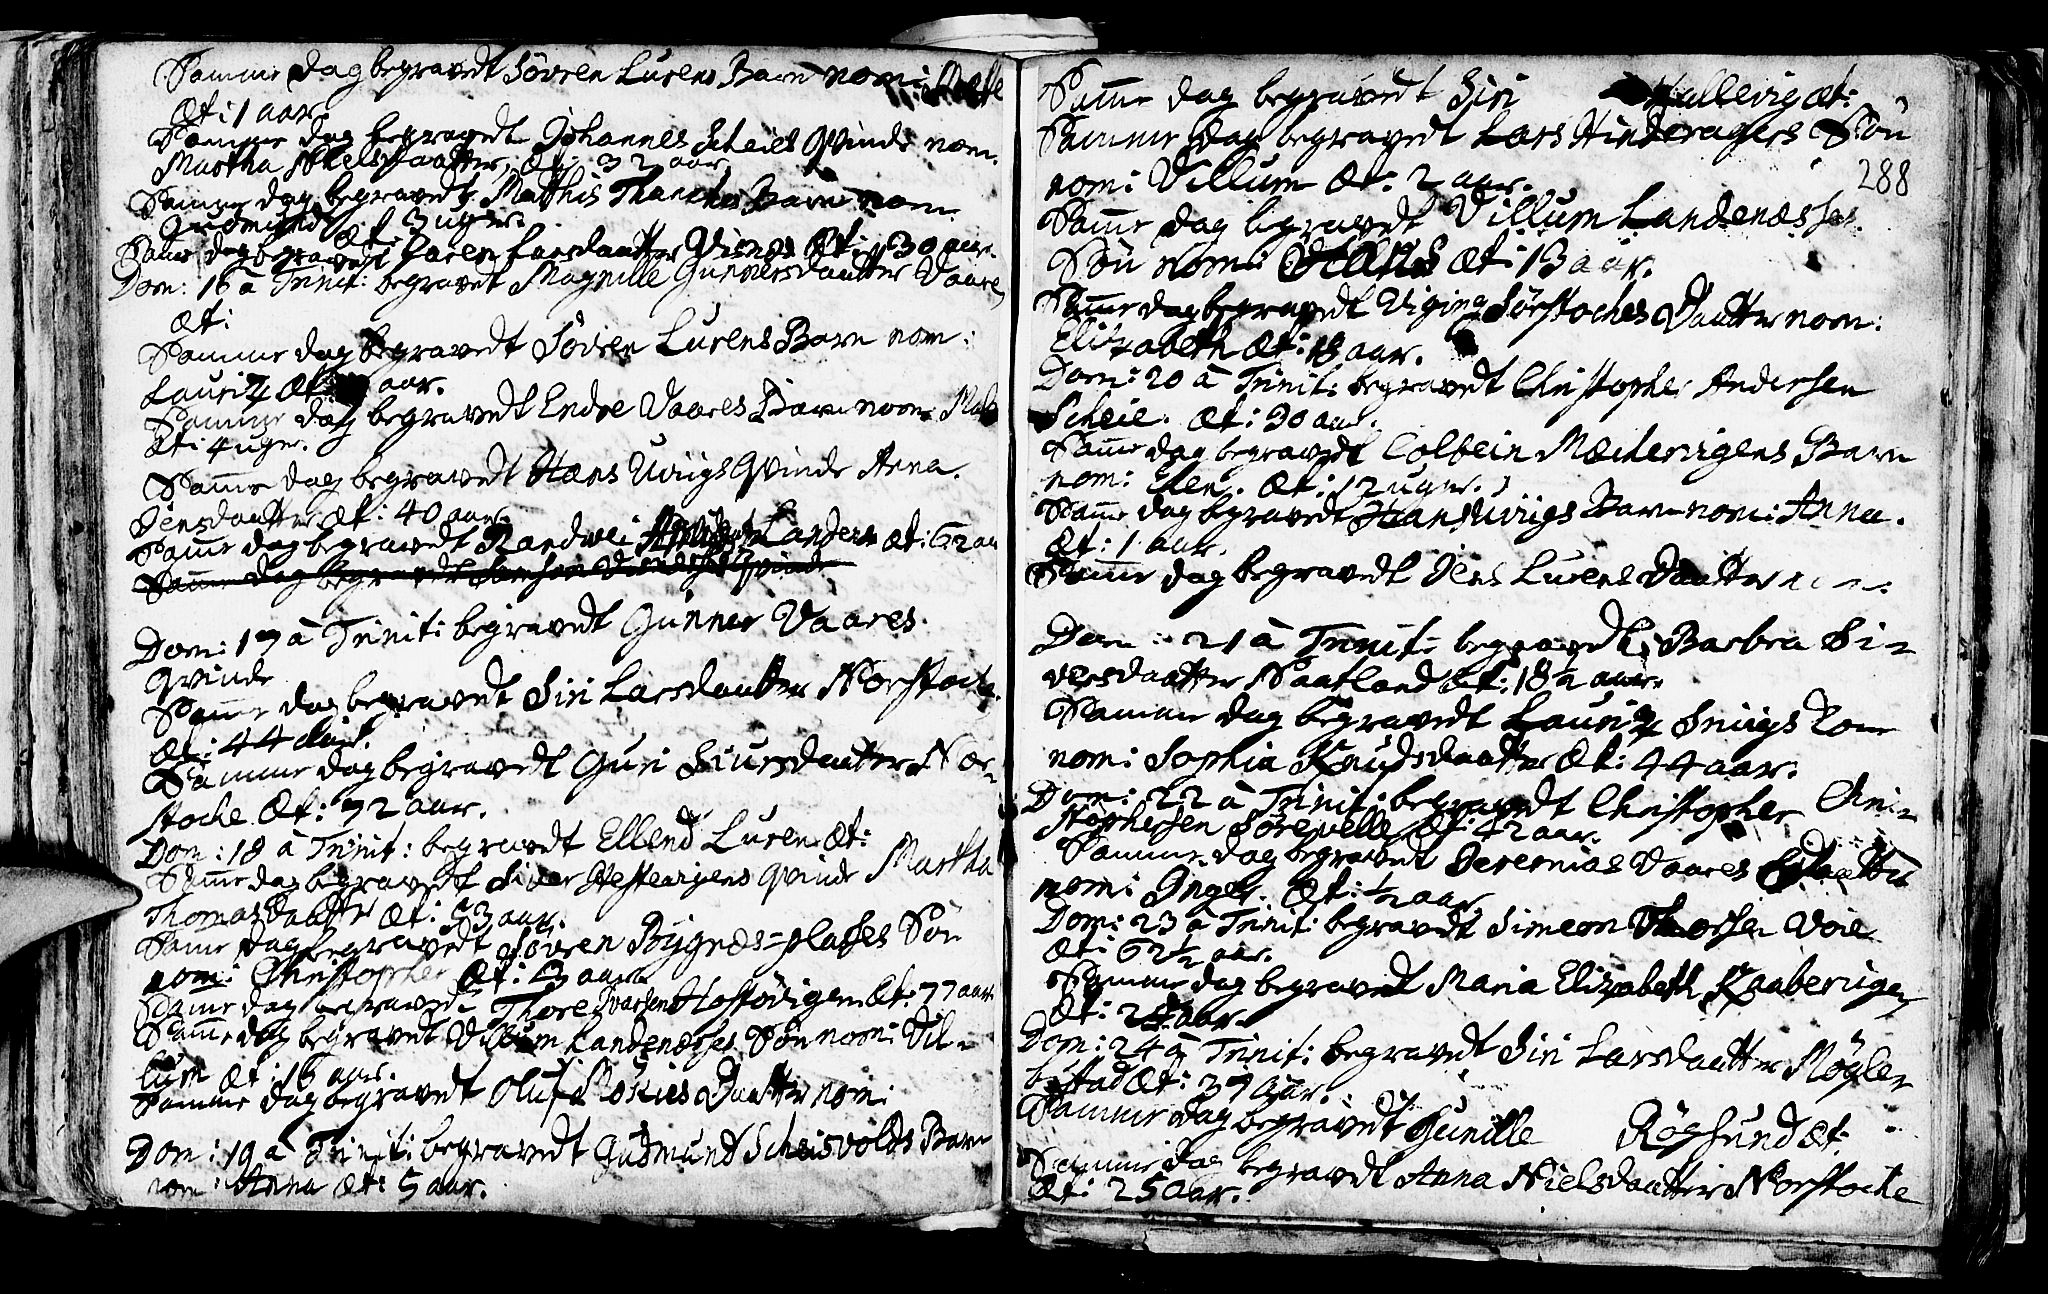 Samme dag begravedt Søvren Lurens Barn nom:
Æt: 1 aar.
Samme dag begravedt Johannes Scheies Qvinde nom.
Martha daatter, Æt: 32 aar
Samme dag begravedt Matthis Barn nom.
Gudmund Æt. 3 uger.
Samme dag begravedt Karen Larsdaatter Visnes Æt: 30 aar.
Dom: 16 à Trinit: begravet Magnille Gunnersdaatter Vaare,
Æt:
Samme dag begravedt Søvren Lurens Barn nom:
Lauritz Æt: aar.
Samme dag begravedt Endre Vaares Barn nom:
Æt: 4 uger.
Samme dag begravedt Hans Uviigs Qvinde Anna.
Jensdaatter Æt: 40 aar.
Samme dag begravedt Randvei Landen æt: 62 aar
Samme dag begravedt Qvinde
Dom: 17 à Trinit: begravedt Gunner Vaares.
Qvinde
Samme dag begravedt Siri Larsdaatter Norstoche.
Æt: 44
Samme dag begravedt Guri Siursdaatter Nor-
stoche Æt: 72 aar.
Dom: 18 à Trinit: begravedt Ellend Luren æt:
Samme dag begravedt Siver Qvinde Martha
Thomasdaatter Æt: 53 aar.
Samme dag begravedt Søvren Bygnes-plasses Søn
nom: Christopher Æt: aar
Samme dag begravedt Thore Ivarsen Æt: 77 aar
Samme dag begravedt Villum Landenæsses Søn nom: Vil-
lum Æt: 16 aar.
Samme dag begravedt Oluf Daatter nom:
Dom: 19 à Trinit: begravedt Gudmund Scheisvolds Barn
nom: Anna Æt: 5 aar.
Samme dag begravedt Siri Hallevig Æt:
Samme dag begravedt Lars Hinderagers Søn
288
nom: Villum Æt: 2 aar.
Samme dag begravedt Villum Landenæsses.
Søn nom: Hans Æt: 13 aar.
Samme dag begravedt Sørstoches Daatter nom:
Elizabeth Æt: 18 aar.
Dom: 20 à Trinit: begravedt Christopher Andersen
Scheie. Æt: 90 aar.
Samme dag begravedt Colbein Barn
nom: Elen. Æt: 12 uger.
Samme dag begravedt Hans Uviigs Barn nom: Anna.
Æt: 1 aar.
Samme dag begravedt Jens Lurens Daatter nom:
Dom: 21 à Trinit: begravedt Barbra Si-
versdaatter Saatland Æt: 18½ aar.
Samme dag begravedt Lauritz Sniigs Kone
nom: Sophia Knudsdaatter Æt: 44 aar.
Dom: 22 à Trinit: begravedt Christopher Chri-
stophersen Sørevelle Æt: 42 aar.
Samme dag begravedt Jeremias Vaares Daatter
nom: Inger. Æt: ½ aar
Dom: 23 à Trinit: begravedt Simeon Thorsen Voie
Æt: 62½ aar.
Samme dag begravedt Maria Elizabeth
Æt: aar.
Dom: 24 à Trinit: begravedt Siri Larsdaatter Møgle-
bøstad Æt: 37 aar.
Samme dag begravedt Gunille Røgsund Æt:
Samme dag begravedt Anna Nielsdaatter Norstoche
Æt: 25 aar.